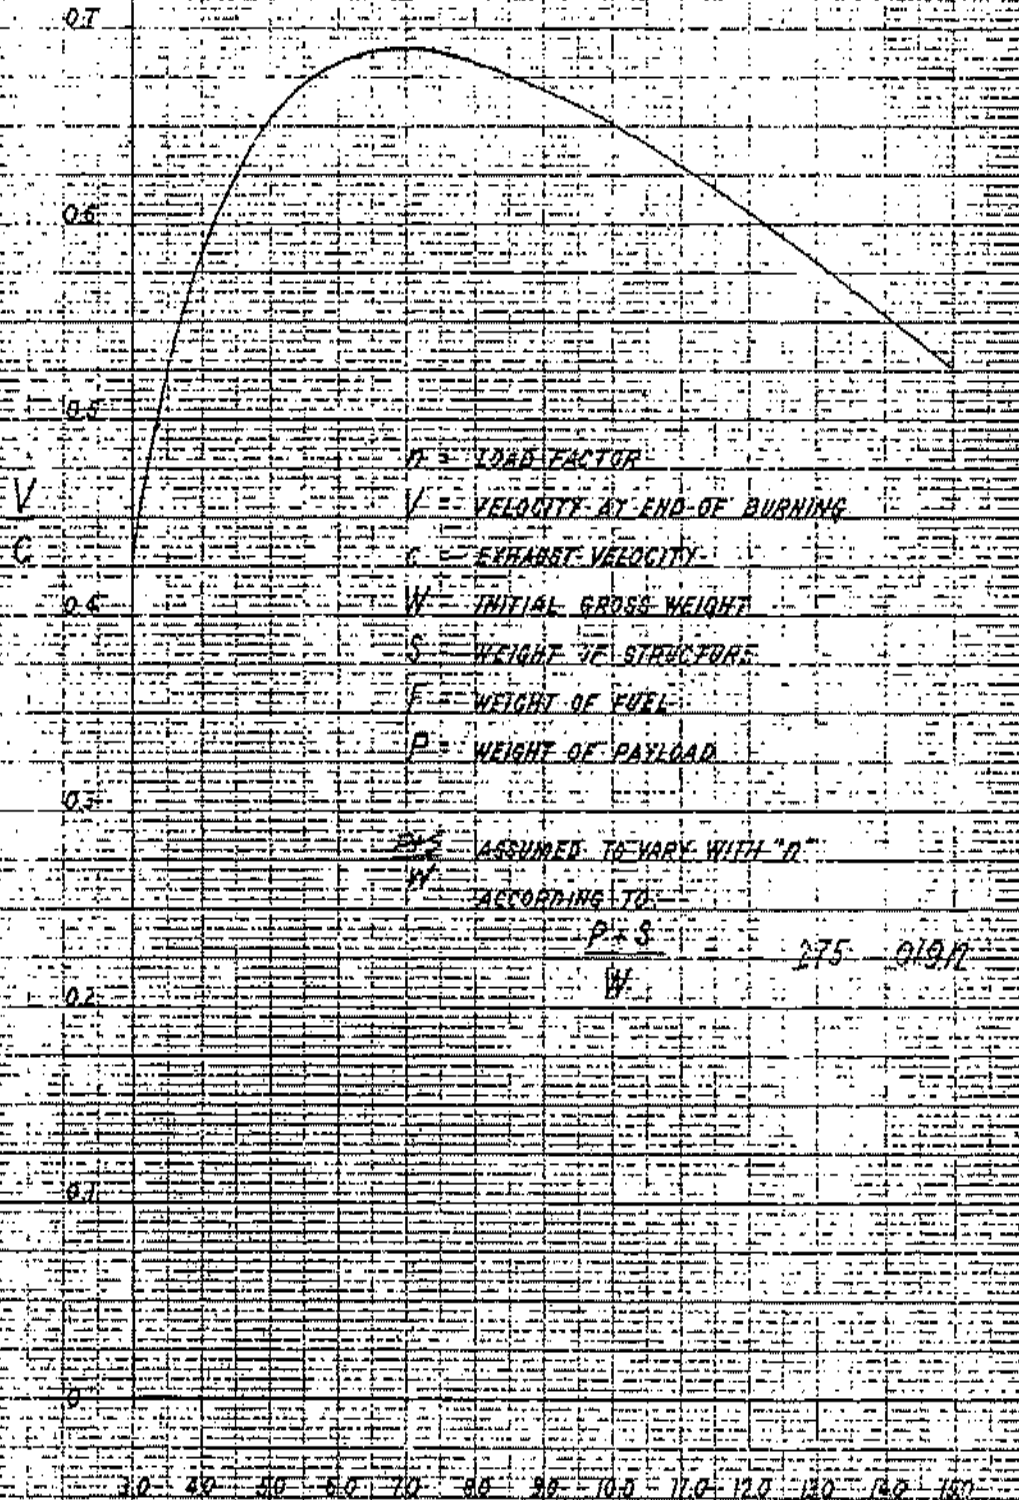 0.7
0.6
0.5
V
C
n = LOAD FACTOR
V = VELOCITY AT END OF BURNING
c = EXHAUST VELOCITY
0.4
W = INITIAL GROSS WEIGHT
S = WEIGHT OF STRUCTURE
F = WEIGHT OF FUEL
P = WEIGHT OF PAYLOAD
0.3
P+S
W
ASSUMED TO VARY WITH "n"
ACCORDING TO
P+S
W
= 275 019n
0.2
0.1
0
3.0 4.0 5.0 6.0 7.0 8.0 9.0 10.0 11.0 12.0 13.0 14.0 15.0